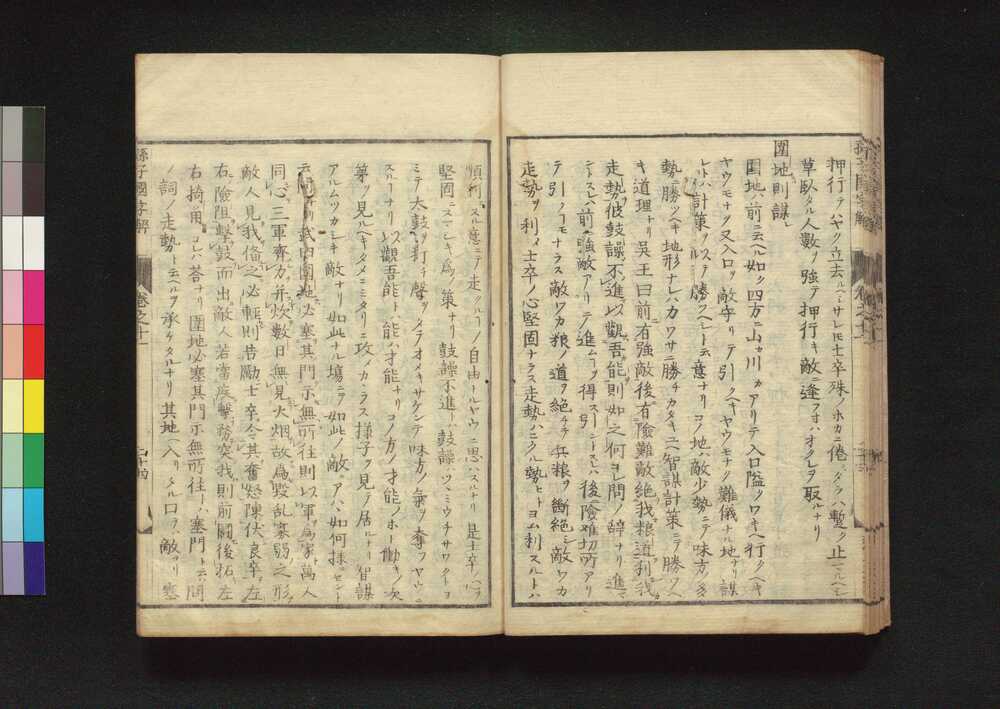 押行テハヤク立去ルヘシサレモ士卒殊ノホカニ倦ミタシハ暫ク止マルヘシ
草臥タル人数ヲ強テ押行キ敵ニ逢フオハオクレヲ取ルナリ
圍地則謀レ
圍地ハ前ニ云ヘル如ク四方ニ山ヤ川カアリテ入口隘クワキヘ行クヘキ
ヤウモナク又入口ヲ敵守リテ引クヘキヤウモナク難儀ナル地ナリ謀
レトハ計策ヲメクラシテ勝ツヘシト云意ナリコノ地ハ敵少勢ニテ味方多
勢勝ツヘキ地形ナレハカワサニ勝チカタキユヘ智謀計策ニテ勝ツヘ
キ道理ナリ呉王曰前有強敵後有險難敵絶我粮道利我
走勢彼鼓譟不進以觀吾能則如之何コレ問ノ辞ナリ進マン
トスレハ前ニ強敵アリテ進ムヲ得ス引ントスレハ後ニ險難切所アリ
テ引クヿモナラス敵ワカ粮ノ道ヲ絶チテ兵粮ヲ斷絶シ敵ワカ
走勢ヲ利メ士卒ノ心堅固ナラス走勢ハニクル勢ヒトヨム利スルトハ
順利スル意ニテ走クルヿノ自由ナルヤウニ思ハスルナリ是士卒ノ心ヲ
堅固ニスマシキ為ノ策ナリ鼓譟不進トハ鼓譟ハツヽミウチサワクトヨ
ミテ太鼓ヲ打チ聲ヲタテオメキサケンテ味方ノ氣ヲ奪フヤウニ
スルナリ以觀吾能ト能ハ才能ナリコノ方ノ才能ノホト働キノ次
第ヲ見ルヘキタメニミタリニ攻メカヽラス様子ヲ見テ居ルナリ智謀
アルムツカシキ敵ナリ如此ナル塲ニテ如此ノ敵ニアハヽ如何様ニセント
云問ナリ武曰圍地必塞其門示無所往則以軍為家萬人
同心三軍齊力并炊數日無見火烟故為毀乱寡弱之形
敵人見我備之必輕則告勵士卒令其奮怒陳伏良卒左
右險阻擊鼓而出敵人若當疾擊務突我則前鬪後拓左
右掎角コレハ荅ナリ圍地必塞其門示無所往トハ塞門ト云ハ問
ノ詞ノ走勢ト云ヘルヲ承ケタルナリ其地ヘ入リタル口ヲ敵ヨリ塞
孫子國字解
卷之十一
二十四